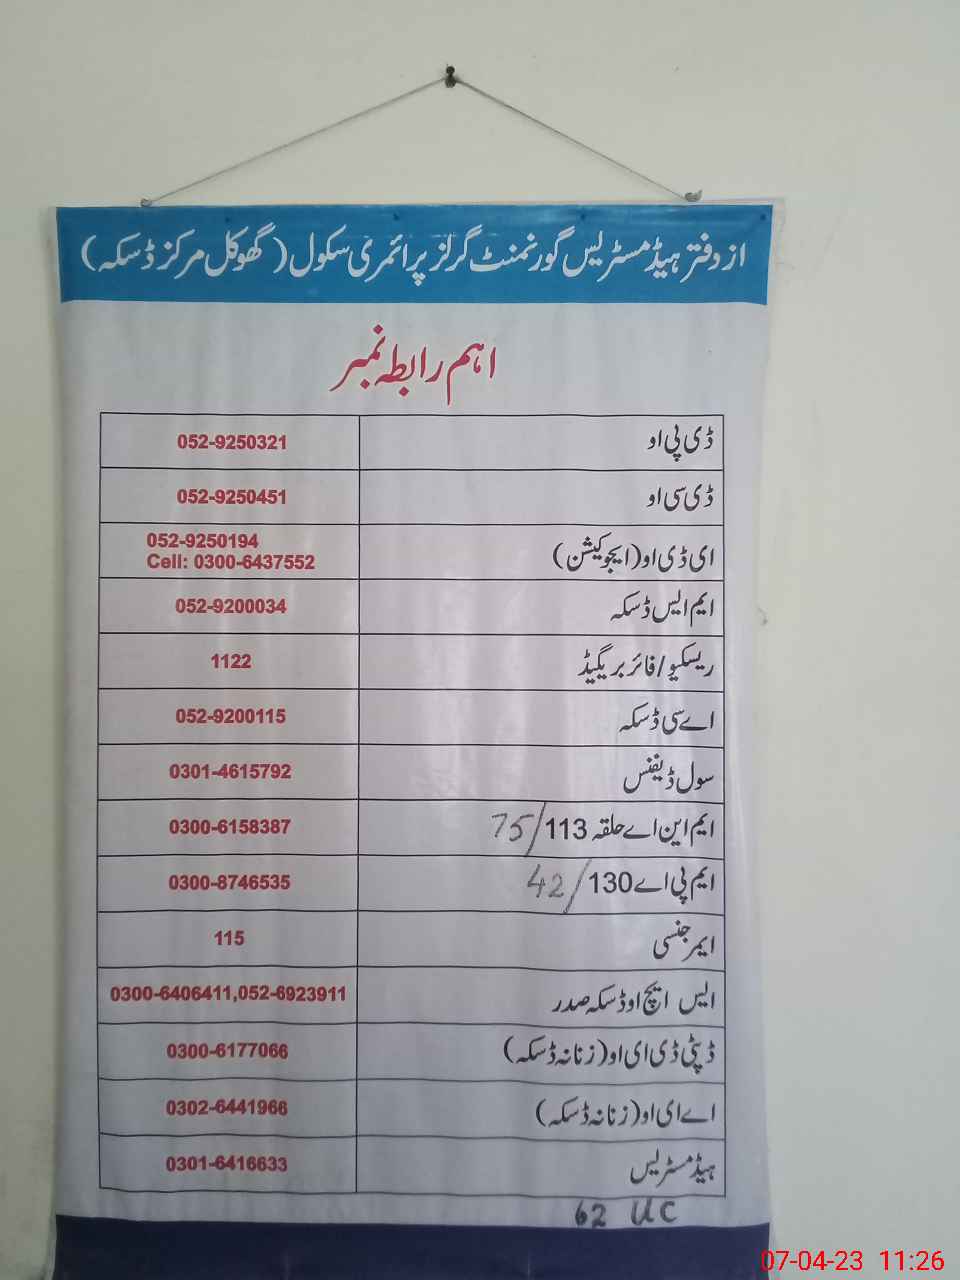 از دفتر ہیڈ مسٹریس گورنمنٹ گرلز پرائمری سکول ( گھوکل مرکز ڈسکہ )
اہم رابطہ نمبر
ڈی پی او 052-9250321
ڈی سی او 052-9250451
ای ڈی او (ایجوکیشن) 052-9250194
Cell: 0300-6437552
ایم ایس ڈسکہ 052-9200034
ریسکیو/فائر بریگیڈ 1122
اے سی ڈسکہ 052-9200115
سول ڈیفنس 0301-4615792
ایم این اے حلقہ 113/75 0300-6158387
ایم پی اے 130/42 0300-8746535
ایمرجنسی 115
ایس ایچ او ڈسکہ صدر 0300-6406411,052-6923911
ڈپٹی ڈی ای او (زنانہ ڈسکہ) 0300-6177066
اے ای او (زنانہ ڈسکہ) 0302-6441966
ہیڈ مسٹریس 0301-6416633
62 UC
07-04-23 11:26